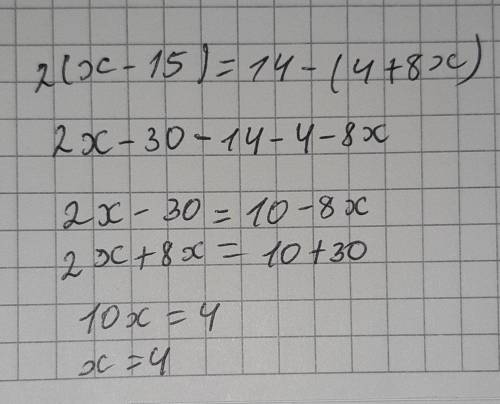 2(x-15)=14-(4+8x)
2x-30-14-4-8x
2x-30=10-8x
2x+8x=10+30
10x=4
x=4